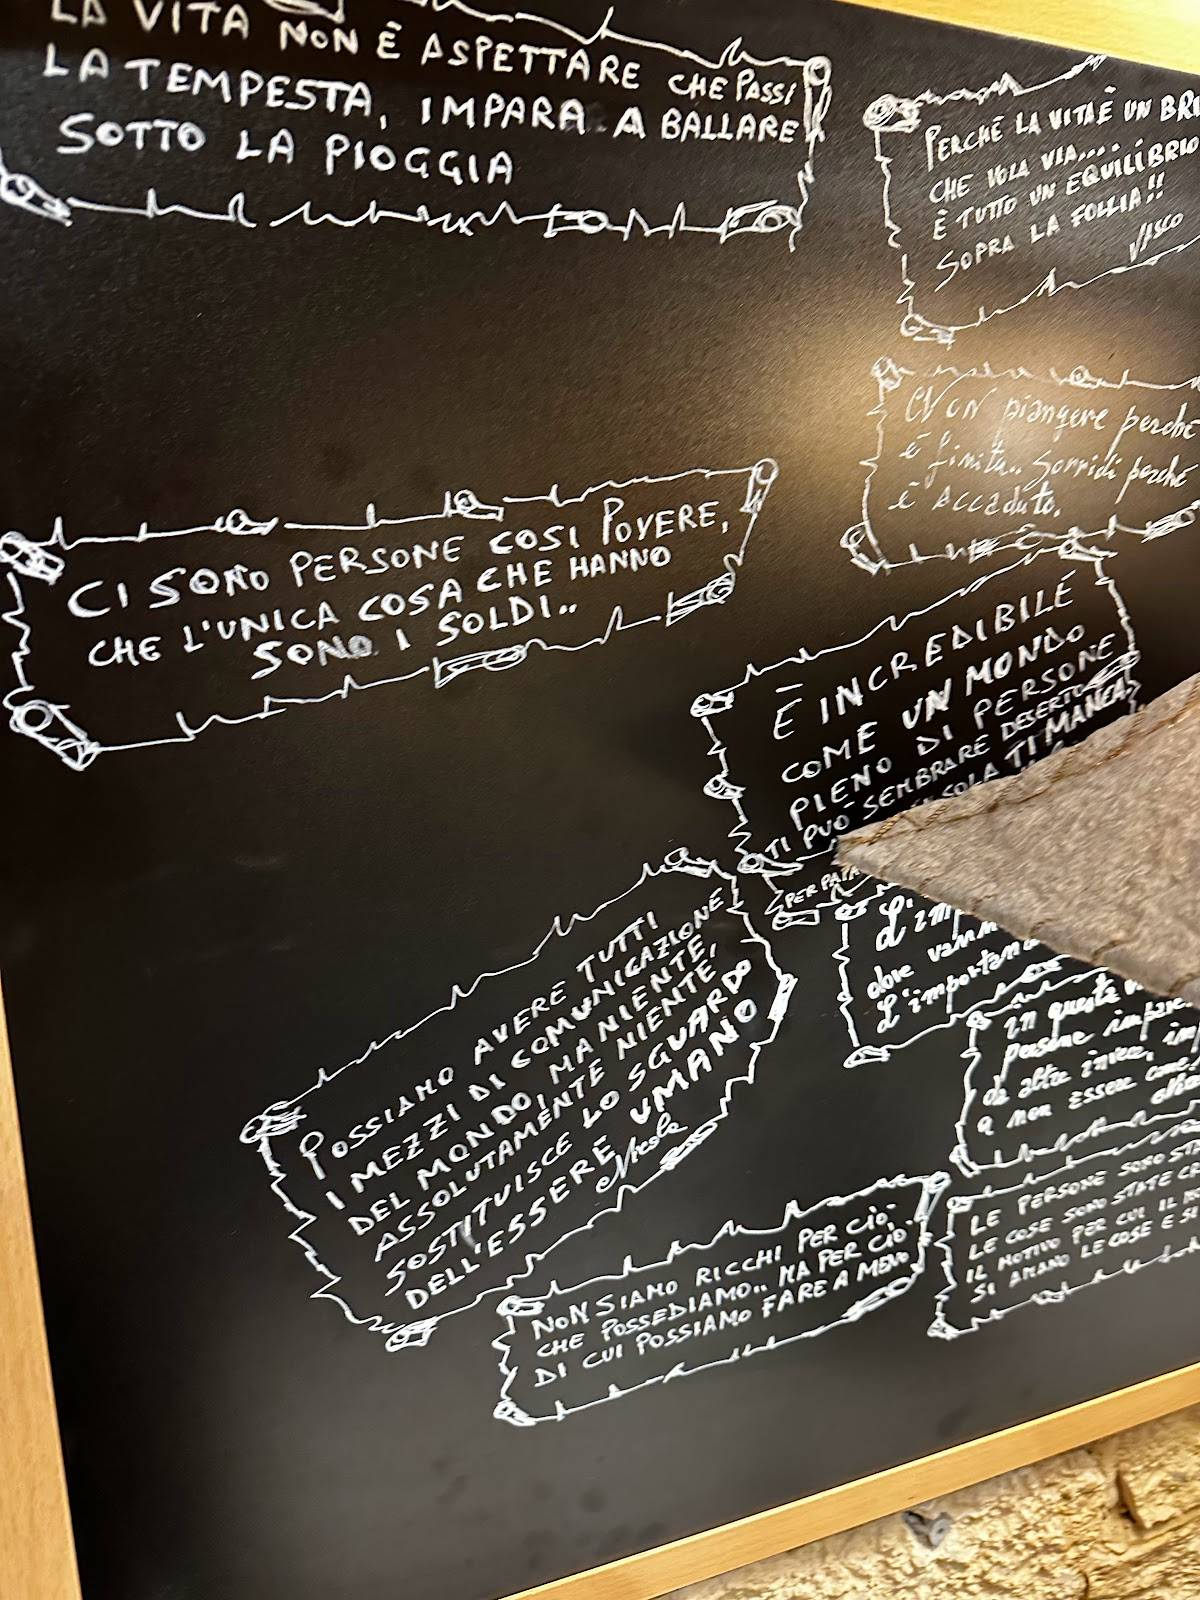 LA VITA NON È ASPETTARE CHE PASSI
LA TEMPESTA, IMPARA A BALLARE
SOTTO LA PIOGGIA
PERCHÈ LA VITA È UN
CHE VOLA VIA....
È TUTTO UN EQUILIBRIO
SOPRA LA FOLLIA!!
VASCO
Non piangere perchè
è finita.. sorridi perchè
è accaduto.
CI SONO PERSONE COSI POVERE,
CHE L'UNICA COSA CHE HANNO
SONO I SOLDI..
È INCREDIBILE
COME UN MONDO
PIENO DI PERSONE
TI PUÒ SEMBRARE DESERTO
SOLA TI MANCA
PER
L'
dove
L'
POSSIAMO AVERE TUTTI
I MEZZI DI COMUNICAZIONE
DEL MONDO, MA NIENTE,
ASSOLUTAMENTE NIENTE,
SOSTITUISCE LO SGUARDO
DELL'ESSERE UMANO
Nicola
in questa
persone
da altre invece,
a non essere come
NON SIAMO RICCHI PER CIÒ
CHE POSSEDIAMO.. MA PER CIÒ
DI CUI POSSIAMO FARE A MENO
LE PERSONE SONO
LE COSE SONO STATE
IL MOTIVO PER CUI IL
SI AMANO LE COSE E SI